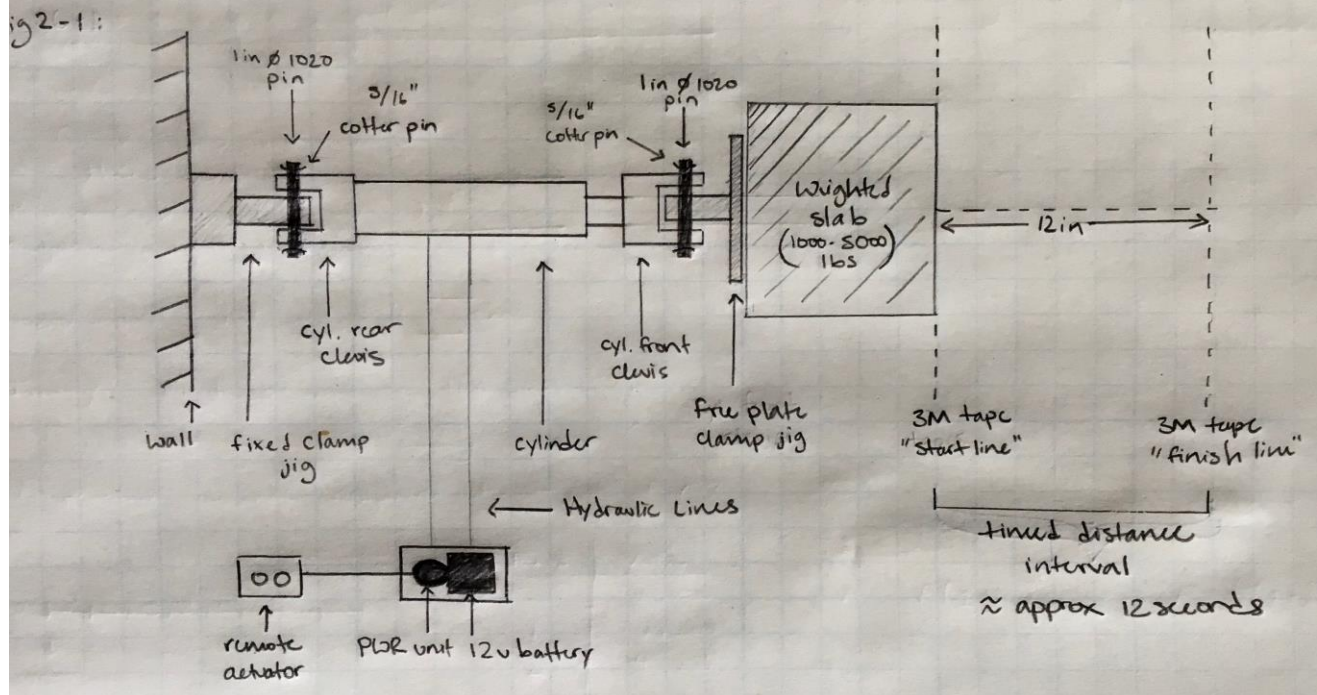 ig 2-1:
1in Ø 1020
pin
5/16"
cotter pin
1in Ø 1020
pin
5/16"
cotter pin
weighted
slab
(1000-5000)
lbs
12in
cyl. rear
clevis
cyl. front
clevis
wall
fixed clamp
jig
cylinder
free plate
clamp jig
3M tape
"start line"
3M tape
"finish line"
Hydraulic Lines
timed distance
interval
≈ approx 12 seconds
remote
actuator
PWR unit
12v battery